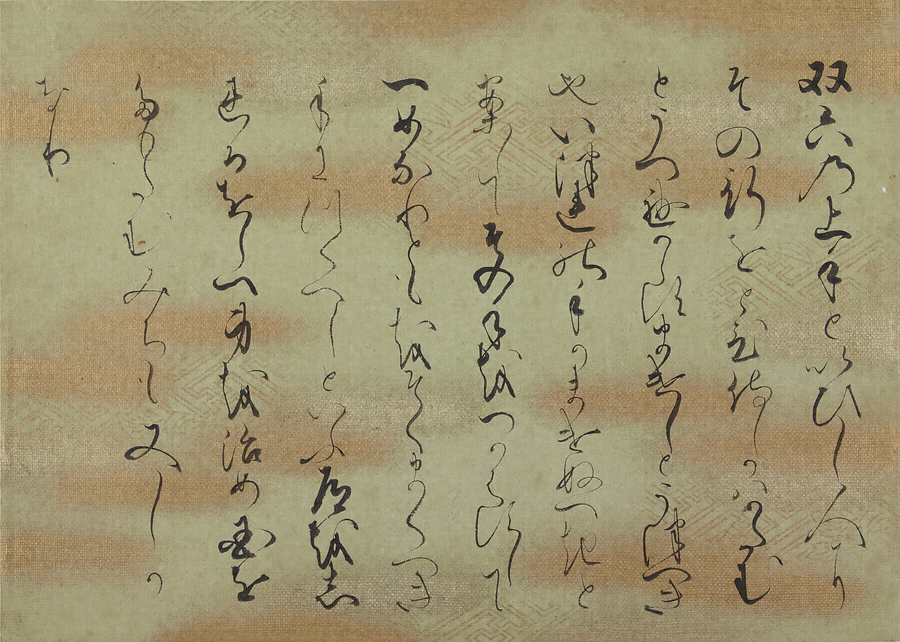 双六乃上手といひし人に
その行をとひ侍しかはかたむ
とうつへからすまけしとうつへき
也いつれの手かまけぬへきと
案してその手をつかはすして
一めなりともをそくまくへき
手につくへしといふ道をし
れるをしへ身を治め国を
たもたむみちも又しか
なり